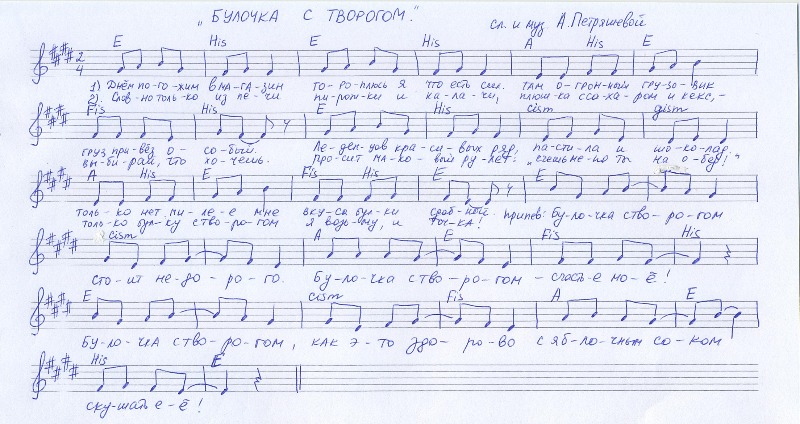 „БУЛОЧКА С ТВОРОГОМ."
сл. и муз. А. Петряшевой
E His E His A His E
2
4
1) Днём по-го-жим в ма-га-зин то-ро-плюсь я что есть сил. там о-гром-ный гру-зо-вик
2) Слов-но толь-ко из пе-чи пи-рож-ки и ка-ла-чи, плюш-ка с са-ха-ром и кекс, -
Fis His E His cism gism
груз при-вёз о-со-бый. Ле-ден-цов кра-си-вых ряд, па-сти-ла и шо-ко-лад
вы-би-рай, что хо-чешь. Про-сит ма-ко-вый ру-лет: „съешь ме-ня ты на о-бед!"
A His E Fis His E
толь-ко нет ми-ле-е мне вку-са бул-ки сдоб-ной. припев: Бу-ло-чка с тво-ро-гом
только бул-ку с тво-ро-гом я возь-му, и точ-ка!
cism A E Fis His
сто-ит не-до-ро-го. Бу-ло-чка с тво-ро-гом - счастье мо-ё!
E cism Fis A E
Бу-ло-чка с тво-ро-гом, как э-то здо-ро-во с яб-ло-чным со-ком
His E
ску-шать е-ё!